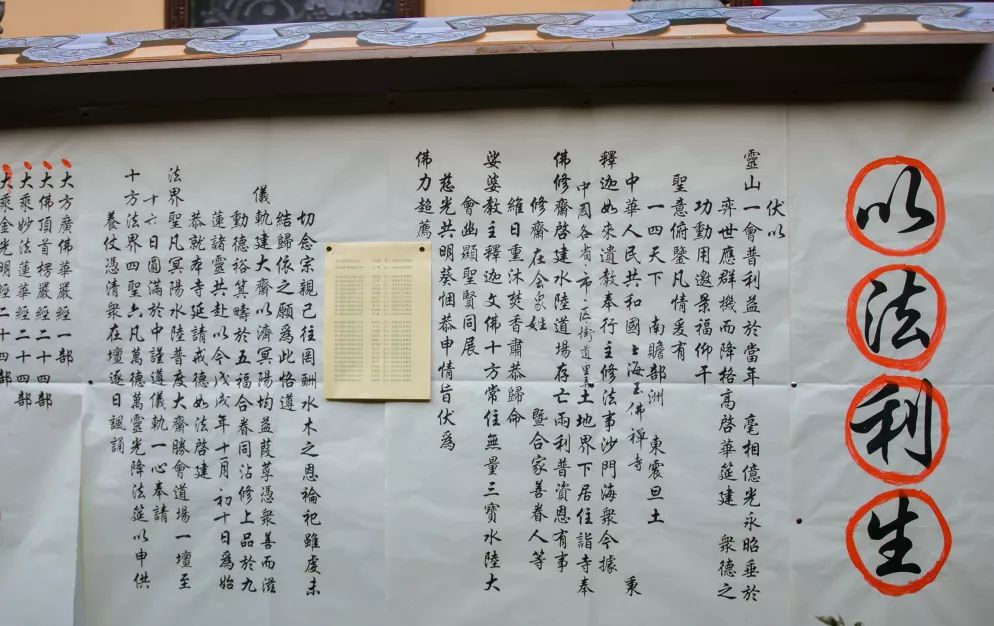 以法利生
伏以
靈山一會普利益於當年 毫相億光永昭垂於
弈世應群機而降格高啓華筵建 衆德之
功動用邀景福仰干
聖意俯鑒凡情爰有
一四天下 南贍部洲 東震旦土
中華人民共和國上海玉佛禪寺 秉
釋迦如來遺教奉行主修法事沙門海衆今據
中國各省市區街道里土地界下居住詣寺奉
佛修齋啓建水陸道場存亡兩利普資恩有事
修齋在會衆姓 暨合家善眷人等
維日重沐焚香肅恭歸命
娑婆教主釋迦文佛十方常住無量三寶水陸大
會幽顯聖賢同展
慈光共明葵悃恭申情旨伏爲
佛力超薦
切念宗親已往罔酬水木之恩禴祀雖虔未
結歸依之願爲此恪遵
儀軌建大齋以濟冥陽均益葭莩憑衆善而滋
動德裕箕疇於五福合眷同沾修上品於九
蓮諸靈共赴以今戊戌年十月初十日爲始
恭就本寺延請戒德如法啓建
法界聖凡冥陽水陸普度大齋勝會道場一壇至
十六日圓滿於中謹遵儀軌一心奉請
十方法界四聖六凡萬德萬靈光降法筵以申供
養仗憑清衆在壇逐日諷誦
大方廣佛華嚴經一部
大佛頂首楞嚴經二十四部
大乘妙法蓮華經二十四部
大乘金光明經二十四部